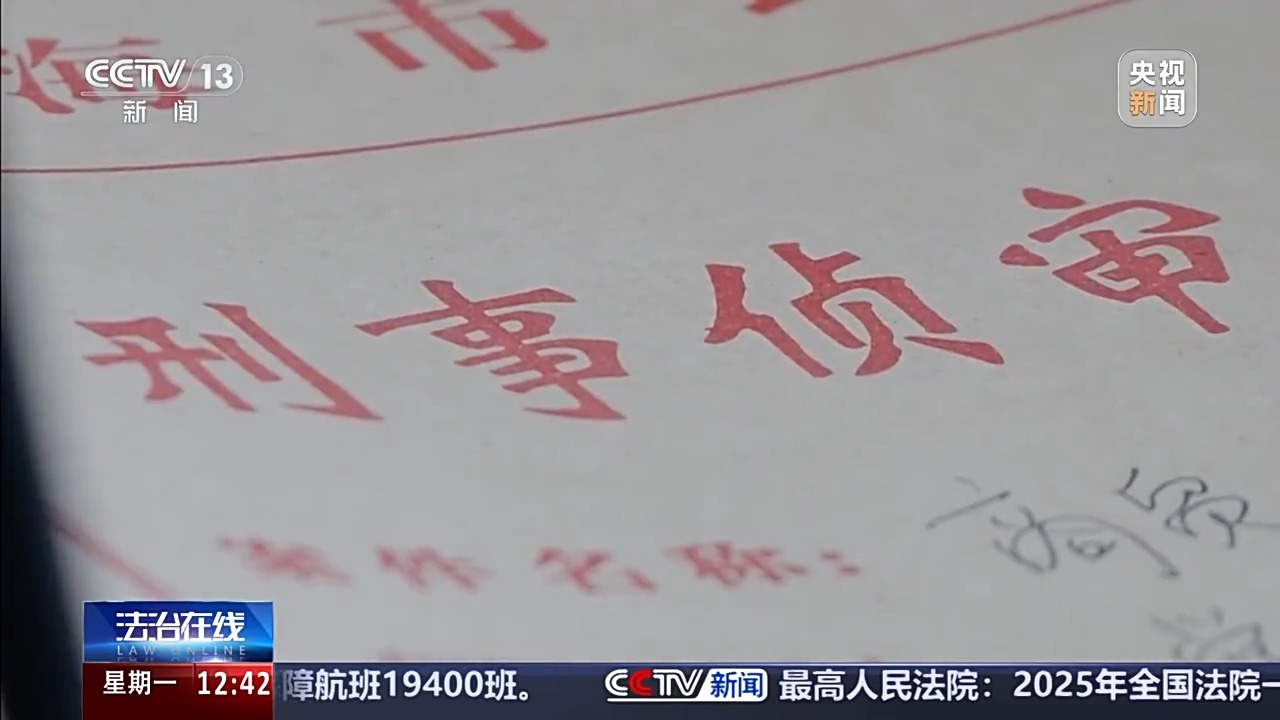 海市
CCTV 13
新闻
央视
新闻
刑事侦审
案件名称：
法治在线
LAW ONLINE
星期一 12:42
障航班19400班。 CCTV新闻 最高人民法院：2025年全国法院一